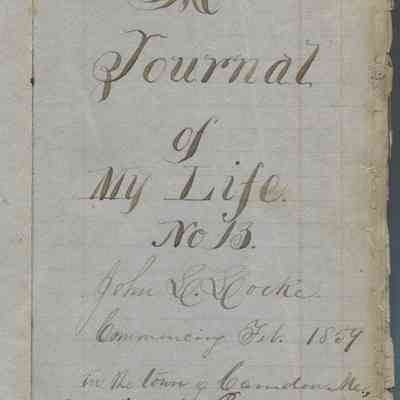 Journal
of
My Life.
No 13.
John L. Locke.
Commencing Feb. 1859
in the town of Camden Me,